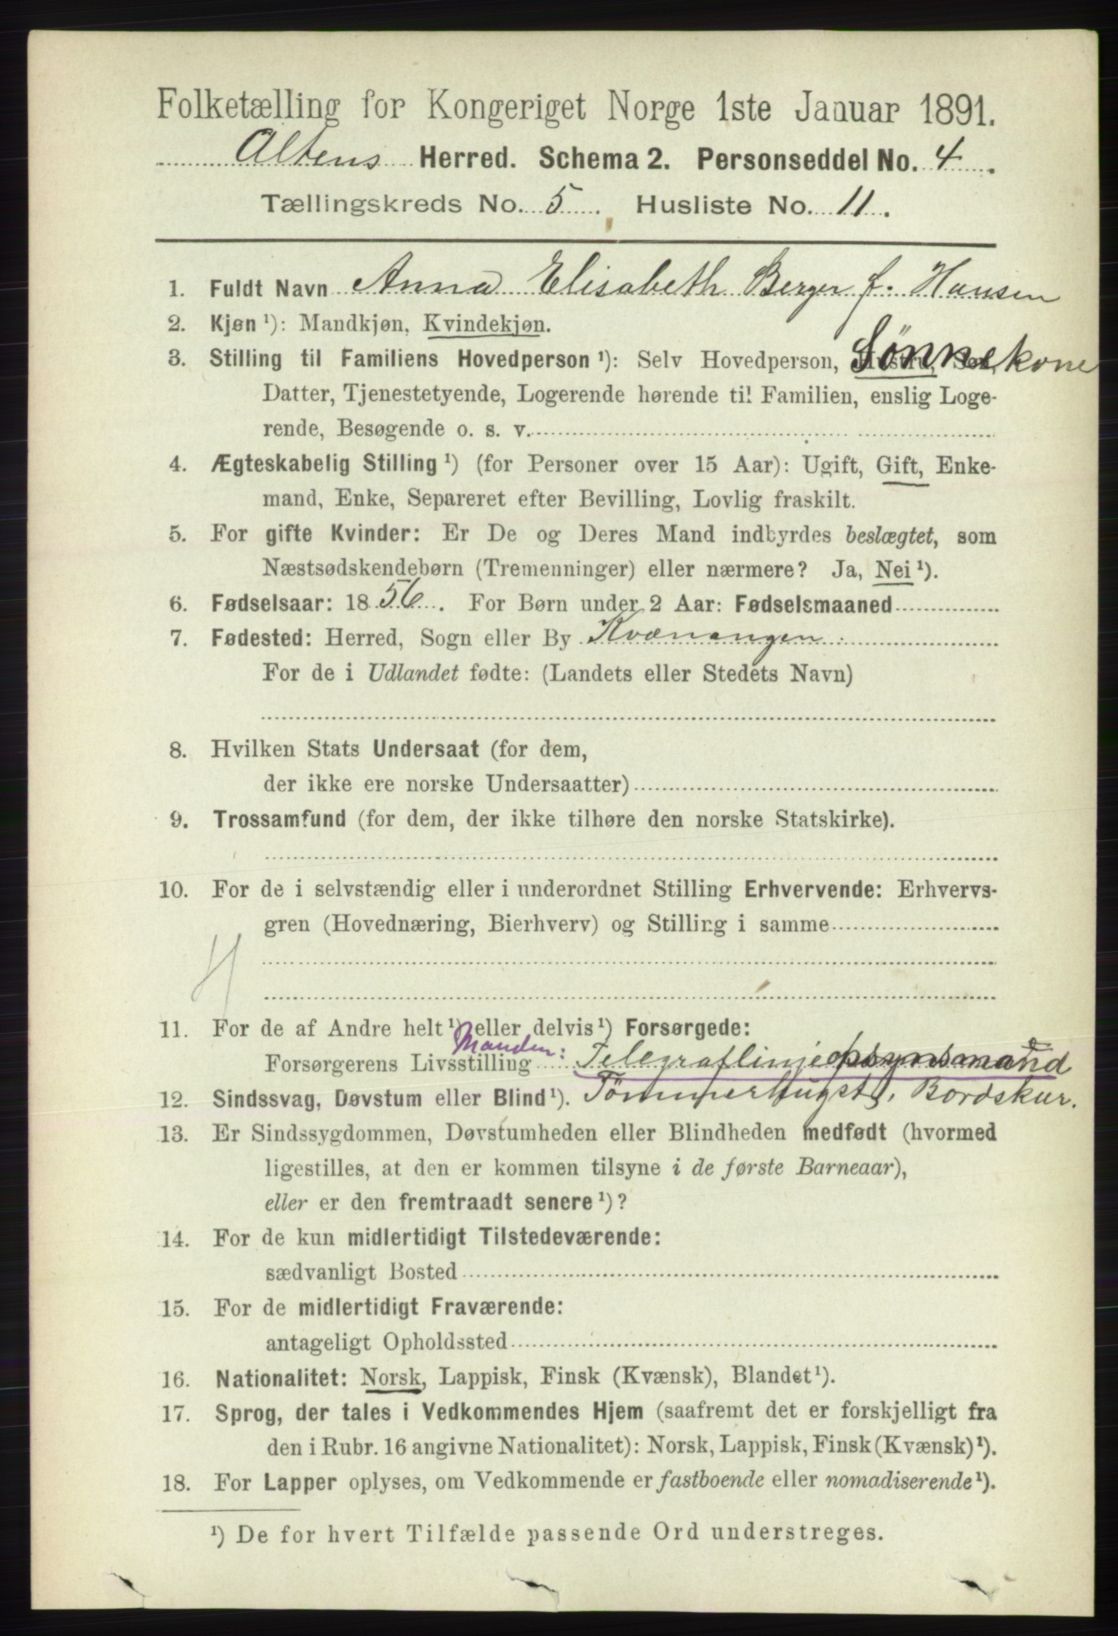 Folketælling for Kongeriget Norge 1ste Januar 1891.
Altens Herred. Schema 2. Personseddel No. 4.
Tællingskreds No. 5. Husliste No. 11.
1. Fuldt Navn Anna Elisabeth Berger f. Hansen
2. Kjøn ¹): Mandkjøn, Kvindekjøn.
3. Stilling til Familiens Hovedperson ¹): Selv Hovedperson, Hustru, Søn, Sønnekone
Datter, Tjenestetyende, Logerende hørende til Familien, enslig Loge-
rende, Besøgende o. s. v.
4. Ægteskabelig Stilling ¹) (for Personer over 15 Aar): Ugift, Gift, Enke-
mand, Enke, Separeret efter Bevilling, Lovlig fraskilt.
5. For gifte Kvinder: Er De og Deres Mand indbyrdes beslægtet, som
Næstsødskendebørn (Tremenninger) eller nærmere? Ja, Nei ¹).
6. Fødselsaar: 1856. For Børn under 2 Aar: Fødselsmaaned
7. Fødested: Herred, Sogn eller By Kvænangen.
For de i Udlandet fødte: (Landets eller Stedets Navn)
8. Hvilken Stats Undersaat (for dem,
der ikke ere norske Undersaatter)
9. Trossamfund (for dem, der ikke tilhøre den norske Statskirke).
10. For de i selvstændig eller i underordnet Stilling Erhvervende: Erhvervs-
gren (Hovednæring, Bierhverv) og Stilling i samme
11. For de af Andre helt ¹) eller delvis ¹) Forsørgede:
Forsørgerens Livsstilling Manden: Telegraflinjeopsynsmand
12. Sindssvag, Døvstum eller Blind ¹). Tømmerhugst, Bordskur.
13. Er Sindssygdommen, Døvstumheden eller Blindheden medfødt (hvormed
ligestilles, at den er kommen tilsyne i de første Barneaar),
eller er den fremtraadt senere ¹)?
14. For de kun midlertidigt Tilstedeværende:
sædvanligt Bosted
15. For de midlertidigt Fraværende:
antageligt Opholdssted
16. Nationalitet: Norsk, Lappisk, Finsk (Kvænsk), Blandet ¹).
17. Sprog, der tales i Vedkommendes Hjem (saafremt det er forskjelligt fra
den i Rubr. 16 angivne Nationalitet): Norsk, Lappisk, Finsk (Kvænsk) ¹).
18. For Lapper oplyses, om Vedkommende er fastboende eller nomadiserende ¹).
¹) De for hvert Tilfælde passende Ord understreges.